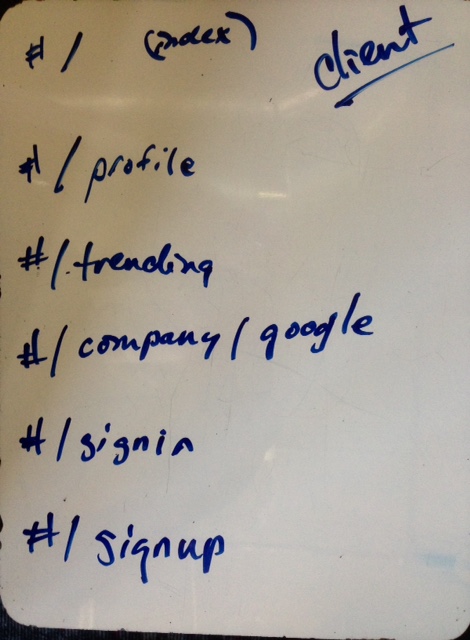 #/ (index)
client
#/profile
#/trending
#/company/google
#/signin
#/signup